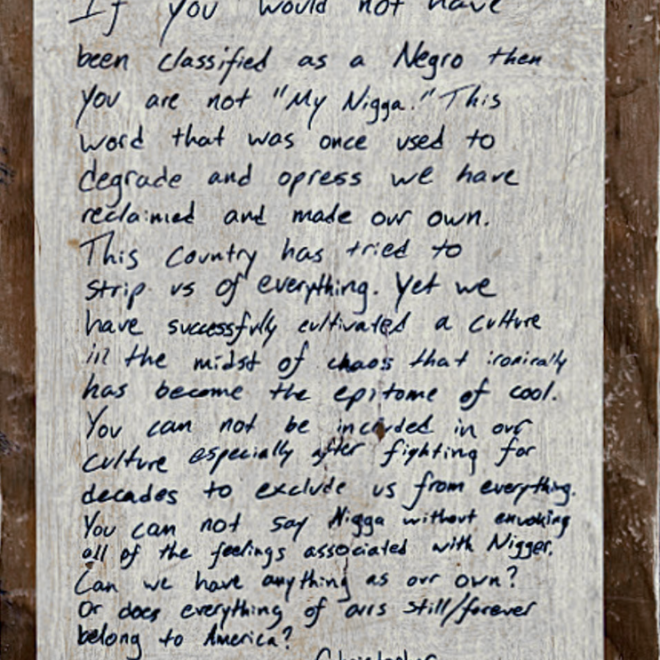 If you would not have
been classified as a Negro then
you are not "My Nigga." This
word that was once used to
degrade and opress we have
reclaimed and made our own.
This country has tried to
strip us of everything. Yet we
have successfully cultivated a culture
in the midst of chaos that ironically
has become the epitome of cool.
You can not be included in our
culture especially after fighting for
decades to exclude us from everything.
You can not say Nigga without envoking
all of the feelings associated with Nigger.
Can we have anything as our own?
Or does everything of ours still/forever
belong to America?